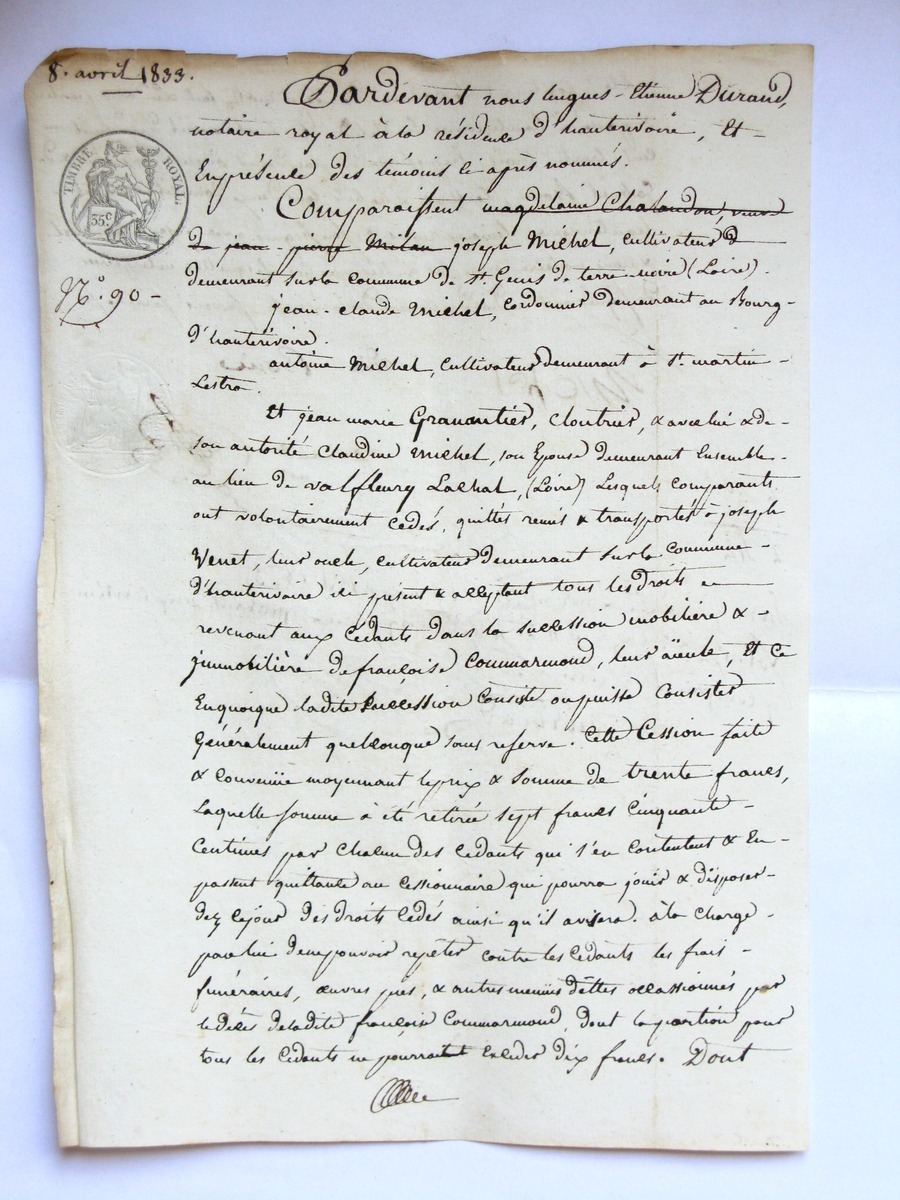 8. avril 1833.
Pardevant nous hugues-Etienne Durand,
notaire royal à la résidence d'hauterivoire, Et
En présence des témoins ci après nommés.
TIMBRE ROYAL.
35c
Comparaissent magdelaine Chalandon, veuve
de jean-pierre Milan joseph Michel, Cultivateur
demeurant sur la Commune de St. Genis de terre-noire (Loire).
N.o 90-
jean-claude Michel, Cordonnier demeurant au Bourg-
d'hauterivoire.
antoine Michel, Cultivateur demeurant à St. martin-
Lestra.
Et jean marie Granantier, Cloutrier, & avec lui & de-
son autorité Claudine Michel, son Epouse demeurant Ensemble-
au lieu de valfleury Lachal, (Loire) Lesquels Comparants
ont volontairement Cédés, quittés remis & transportés à joseph
Venet, leur oncle, Cultivateur demeurant sur la Commune-
d'hauterivoire ici présent & acceptant tous les droits
revenant aux Cédants dans la succession mobilière &-
jmmobilière de françoise Commarmond, leur äieule, Et Ce
En quoique ladite succession Consiste ou puisse Consister
Généralement quelconque sans reserve. Cette Cession faite
& Convenüe moyennant le prix & Somme de trente francs,
Laquelle somme à été retirée sept francs Cinquante-
Centimes par Chacun des Cédants qui s'en Contentent & En-
passent quittance au Cessionnaire qui pourra jouir & disposer-
dez ce jour des droits Cédés ainsi qu'il avisera. à la Charge-
par lui de ne pouvoir repéter contre les Cédants les frais-
funéraires, œuvres pies, & autres menües dêttes occasionnés par
le décés de ladite françoise Commarmond, dont la portion pour
tous les Cédants ne pourrait Excéder dix francs. Dont